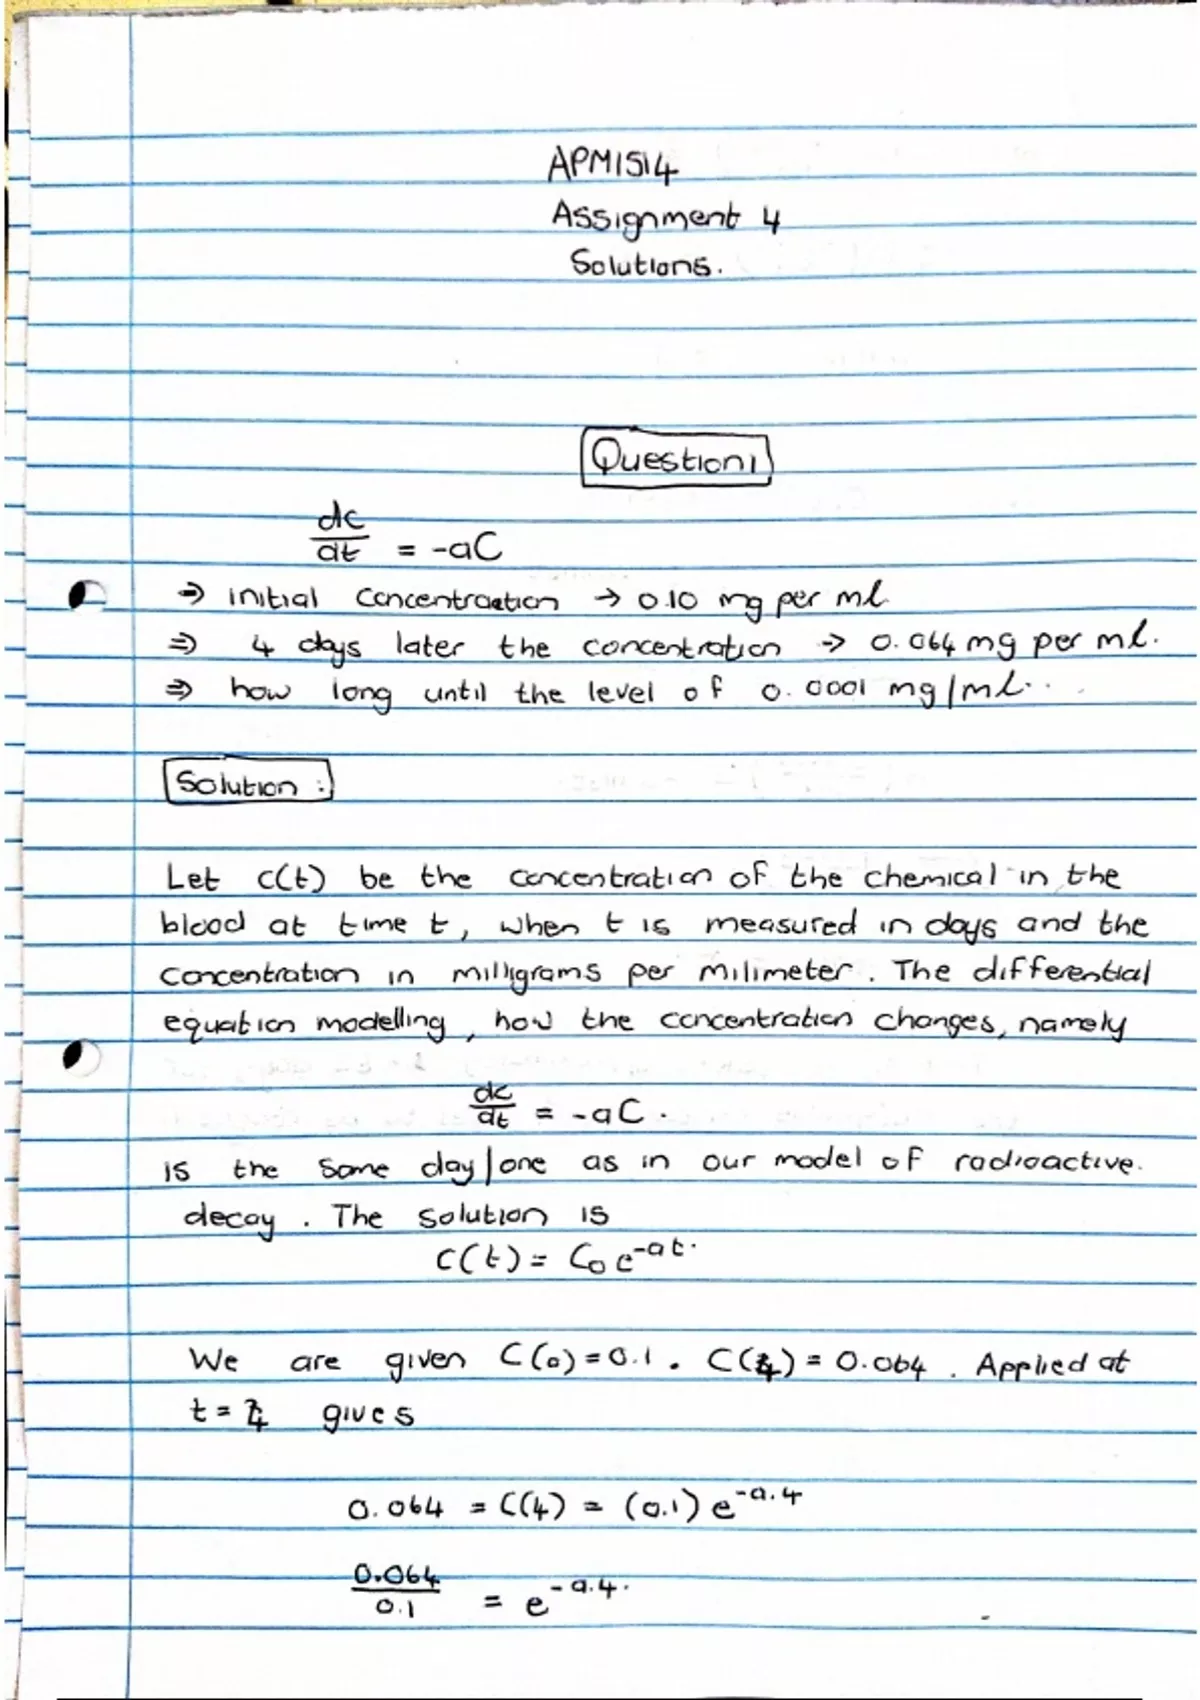 APM1514
Assignment 4
Solutions.
Question 1
dc/dt = -aC
⇒ initial concentration → 0.10 mg per ml
⇒ 4 days later the concentration → 0.064 mg per ml.
⇒ how long until the level of 0.0001 mg/ml.
Solution :
Let c(t) be the concentration of the chemical in the
blood at time t, when t is measured in days and the
concentration in milligrams per milimeter. The differential
equation modelling, how the concentration changes, namely
dc/dt = -aC.
is the same day/one as in our model of radioactive.
decay. The solution is
C(t) = C₀e^-at.
We are given C(0) = 0.1. C(4) = 0.064. Applied at
t = 4 gives
0.064 = C(4) = (0.1) e^-a.4
0.064/0.1 = e^-a.4.